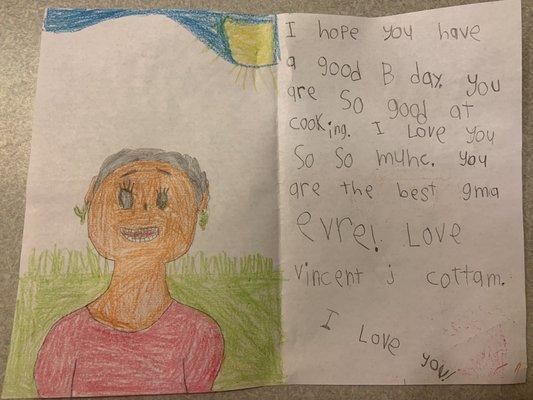 I hope you have
a good B day. you
are so good at
cooking. I Love you
So So muhc. you
are the best gma
evre! Love
vincent j cottam.
I Love you!